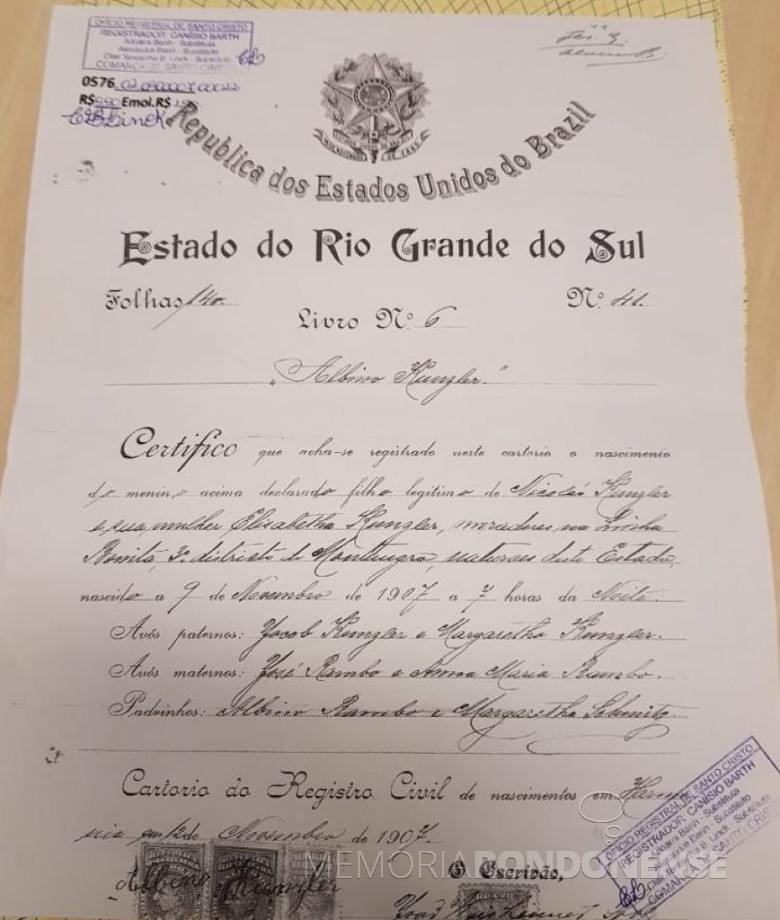 OFÍCIO REGISTRAL DE SANTO CRISTO
REGISTRADOR: CANÍSIO BARTH
Adriana Barth - Substituta
Alexandre Barth - Substituto
COMARCA DE SANTO CRISTO
0576
R$ Emol.R$
Republica dos Estados Unidos do Brazil
Estado do Rio Grande do Sul
Folhas 140. Nº 41.
Livro Nº 6
"Albino Kunzler."
Certifico que acha-se registrado neste cartorio o nascimento
do menino acima declarado filho legitimo de Nicolau Kunzler
e sua mulher Elisabetha Kunzler, moradores na Linha
Bonita, 3º districto de Montenegro, naturaes deste Estado,
nascido a 9 de Novembro de 1907 a 7 horas da Noite.
Avós paternos: Jacob Kunzler e Margaretha Kunzler.
Avós maternos: José Rambo e Anna Maria Rambo.
Padrinhos: Albino Rambo e Margaretha Schmitz.
Cartorio do Registro Civil de nascimentos em Harmo
nia em 12 de Novembro de 1907.
O Escrivão,
Albino Kunzler
OFÍCIO REGISTRAL DE SANTO CRISTO
REGISTRADOR: CANÍSIO BARTH
Adriana Barth - Substituta
Alexandre Barth - Substituto
COMARCA DE SANTO CRISTO
MEMÓRIA RONDONENSE